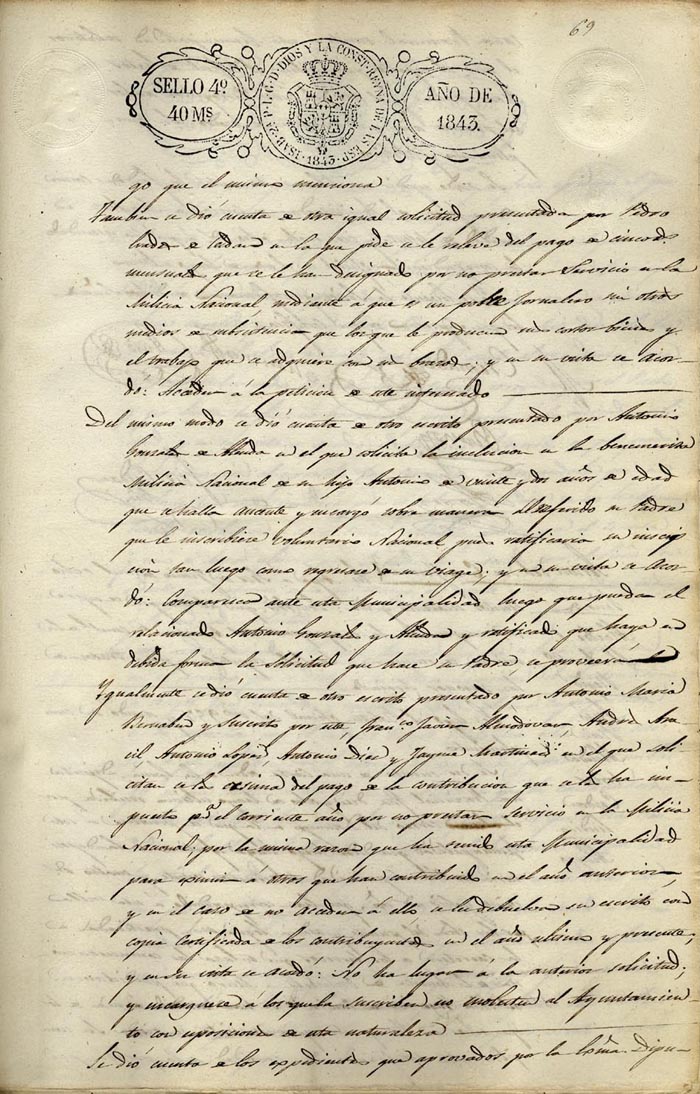 69
SELLO 4º
40 Ms
ISAB. 2ª P. L. G. D. DIOS Y LA CONST. REYNA DE LAS ESP. 1843.
AÑO DE
1843.
go que el mismo menciona
Tambien se dió cuenta de otra igual solicitud presentada por Pedro
de en la que pide se le releve del pago de cinco
mensuales que se le han designado por no prestar Servicio en la
Milicia Nacional, mediante á que es un pobre Jornalero sin otros
medios de subsistencia que los que le producen sus cortos bienes y
el trabajo que se adquiere con sus brazos; y en su vista se Acor-
dó: Acceder á la peticion de este interesado
Del mismo modo se dió cuenta de otro escrito presentado por Antonio
Gonzalez de en el que solicita la inclusion en la benemerita
Milicia Nacional de su hijo Antonio de veinte y dos años de edad
que se halla ausente y encargó sobre manera al referido su Padre
que le inscribiese voluntario Nacional, pues ratificaria su inscrip-
cion tan luego como regresare de su Viage; y en su vista se Acor-
dó: Comparezca ante esta Municipalidad luego que pueda el
relacionado Antonio Gonzalez y y ratificado que haya en
debida forma la Solicitud que hace su Padre, se proveerá
Ygualmente se dió cuenta de otro escrito presentado por Antonio Maria
Bernabeu y Suscrito por este, Franco. Javier Almodovar, Andrés Ara-
cil, Antonio Lopez, Antonio Diez y Jayme Martinez en el que soli-
citan se les exsima del pago de la contribucion que se les ha im-
puesto pa. el corriente año por no prestar servicio en la Milicia
Nacional, por la misma razon que ha tenido esta Municipalidad
para eximir á otros que han contribuido en el año anterior,
y en el caso de no acceder á ello se les debuelva su escrito con
copia certificada de los contribuyentes en el año ultimo y presente,
y en su vista se acordó: No ha lugar á la anterior solicitud;
y encarguese á los que la suscriben no molesten al Ayuntamien-
to con esposiciones de esta naturaleza
Se dió cuenta de los expedientes que aprovados por la Exma. Dipu-